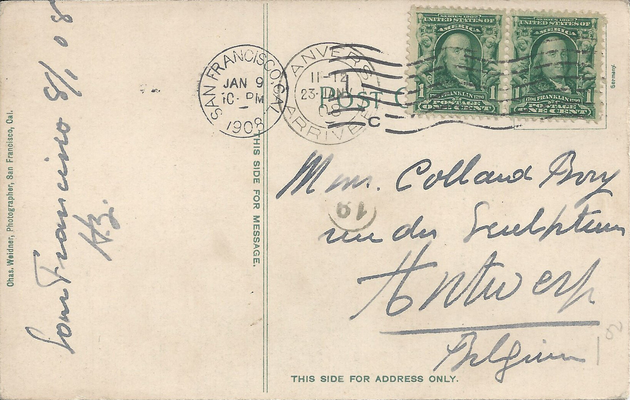 Chas. Weidner, Photographer, San Francisco, Cal.
San Francisco 8/1 08
H.Z.
THIS SIDE FOR MESSAGE.
SAN FRANCISCO, CAL.
JAN 9
10-PM
1908
ANVERS
11-12
23-
08
ARRIVÉE
C
POST C
SERIES 1902
UNITED STATES OF AMERICA
1 FRANKLIN 1
POSTAGE
ONE CENT
SERIES 1902
UNITED STATES OF AMERICA
1 FRANKLIN 1
POSTAGE
ONE CENT
Germany.
RE
19
Mons. Collard Bory
rue du Sculpteurs
Antwerp
Belgium
THIS SIDE FOR ADDRESS ONLY.